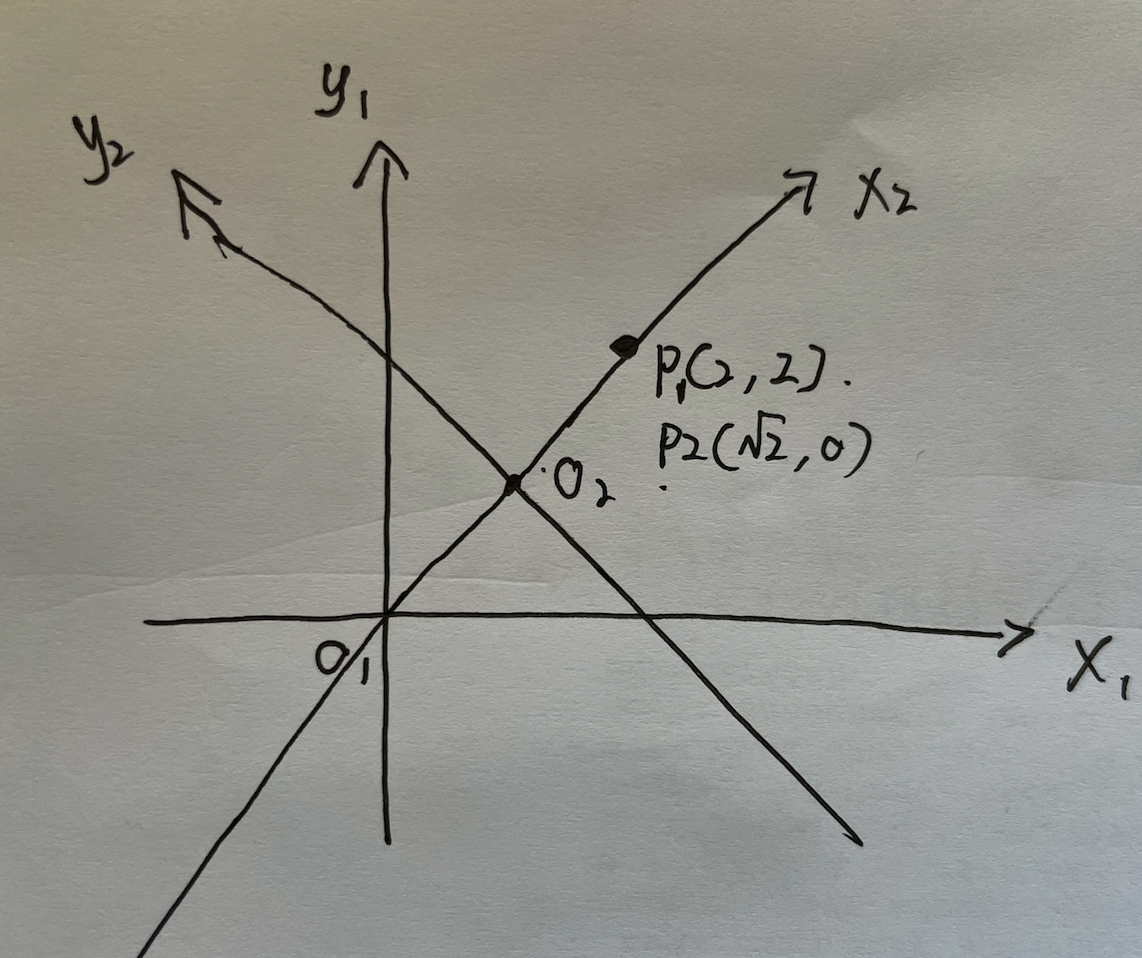 y₁
y₂
x₂
P₁(2,2).
P2(√2,0)
O₂
O₁
X₁